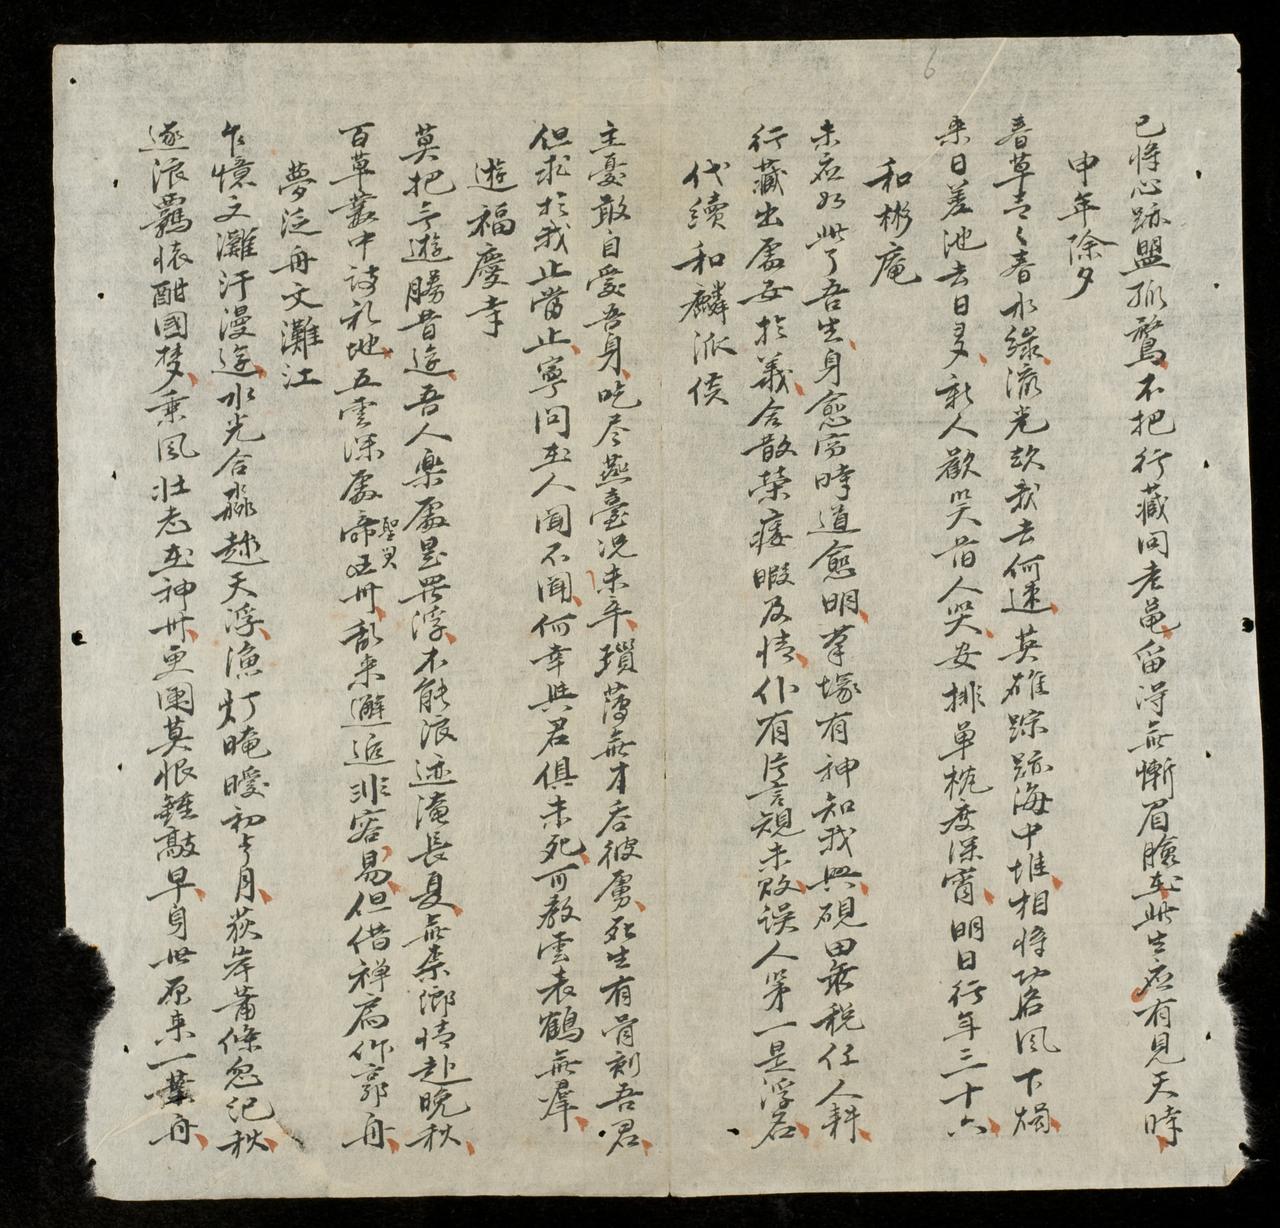 已將心跡盟孤鶩不把行藏問老黽留得無慚眉臉在此生應有見天時
申年除夕
春草青々春水綠流光趂我去何速英雄踪跡海中堆相將功名風下燭
来日差池去日多新人歡笑舊人哭安排單枕度深宵明日行年三十六
和彬庵
未应如此了吾生身愈窮時道愈明筆塚有神知我與硯田無税任人耕
行藏出處安於義合散榮瘁暇及情仆有片言規未敗误人第一是浮名
代續和麟派倓
主憂敢自愛吾身吃尽燕臺况未辛瑣薄無才吞彼虜死生有骨刻吾君
但求於我止當止寧問在人聞不聞何幸與君俱未死可教雲表鶴無羣
遊福慶寺
莫把今遊勝昔遊吾人樂處是罘浮不能浪迹淹長夏無柰鄉情赴晚秋
百草叢中詩礼地五雲深處帝王州亂来邂逅非容易但借禅扃作郭舟
聖賢
夢泛舟文灘江
乍憶文灘汗漫遊水光合淼趂天浮漁灯晻曖初生月荻岸蕭條忽汜秋
逐浪羈懷酣國梦乗風壮志在神州更闌莫恨鍾敲早身世原来一葉舟